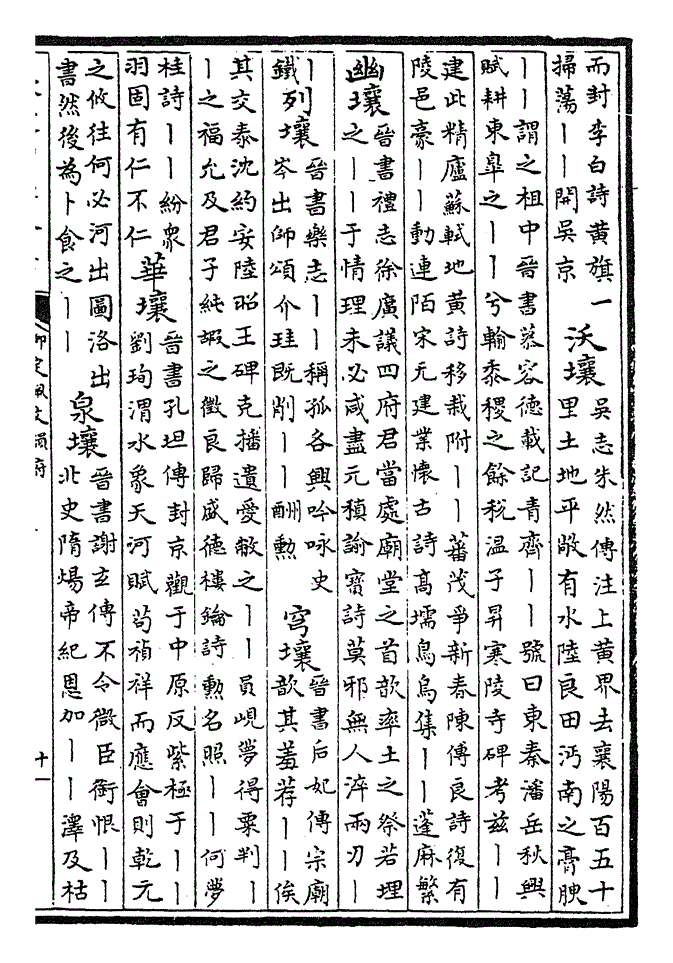 而封李白詩黃旗一
掃蕩丨丨開吳京
沃壤
吳志朱然傳注上黃界去襄陽百五十
里土地平敞有水陸良田沔南之膏腴
丨丨謂之柤中晉書慕容德載記青齊丨丨號曰東秦潘岳秋興
賦耕東臯之丨丨兮輸黍稷之餘稅温子昇寒陵寺碑考兹丨丨
建此精廬蘇軾地黃詩移栽附丨丨蕃茂爭新春陳傅良詩復有
陵邑豪丨丨動連陌宋无建業懷古詩髙壖鳥烏集丨丨蓬麻繁
幽壤
晉書禮志徐廣議四府君嘗處廟堂之首歆率土之祭若埋
之丨丨于情理未必咸盡元稹諭寶詩莫邪無人淬兩刃丨
丨
鐵
列壤
晉書樂志丨丨稱孤各興吟咏史
岑出師頌介珪既削丨丨酬勲
穹壤
晉書后妃傳宗廟
歆其羞荐丨丨俟
其交泰沈約安陸昭王碑克播遺愛敝之丨丨員峴夢得粟判丨
丨之福允及君子純嘏之徵良歸盛德樓鑰詩勲名照丨丨何夢
桂詩丨丨紛衆
羽固有仁不仁
華壤
晉書孔坦傳封京觀于中原反紫極于丨丨
劉珣渭水象天河賦茍禎祥而應會則乾元
之攸往何必河出圖洛出
書然後為卜食之丨丨
泉壤
晉書謝玄傳不令微臣銜恨丨丨
北史隋煬帝紀恩加丨丨澤及枯
御定佩文韻府
十一